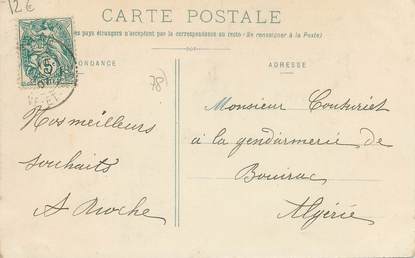 12 €
CARTE POSTALE
les pays étrangers n'acceptent pas la correspondance au recto (Se renseigner à la Poste)
ONDANCE
ADRESSE
78
Nos meilleurs
souhaits
A Roche
Monsieur Couturiet
à la gendarmerie de
Bouira
Algérie